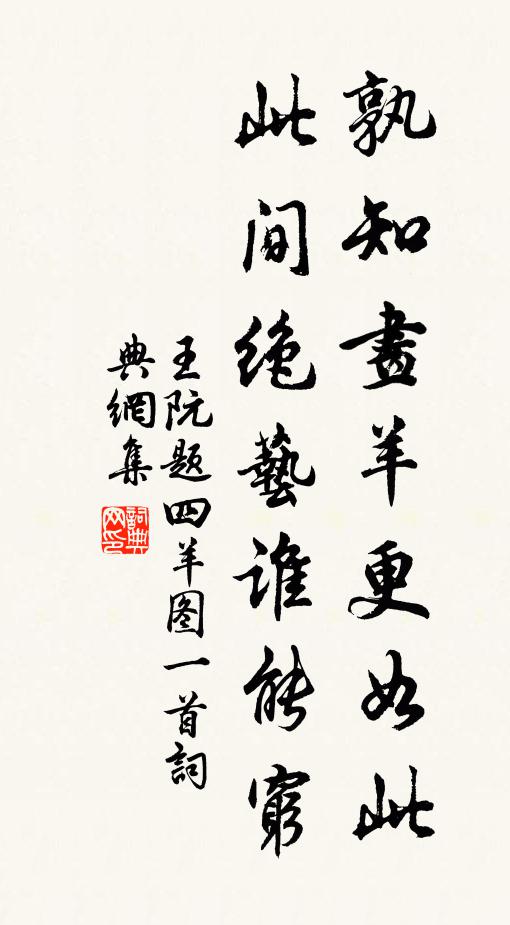 孰知畫羊更如此
此间绝藝谁能窮
王阮题四羊图一首詞
典網集
詞典网印